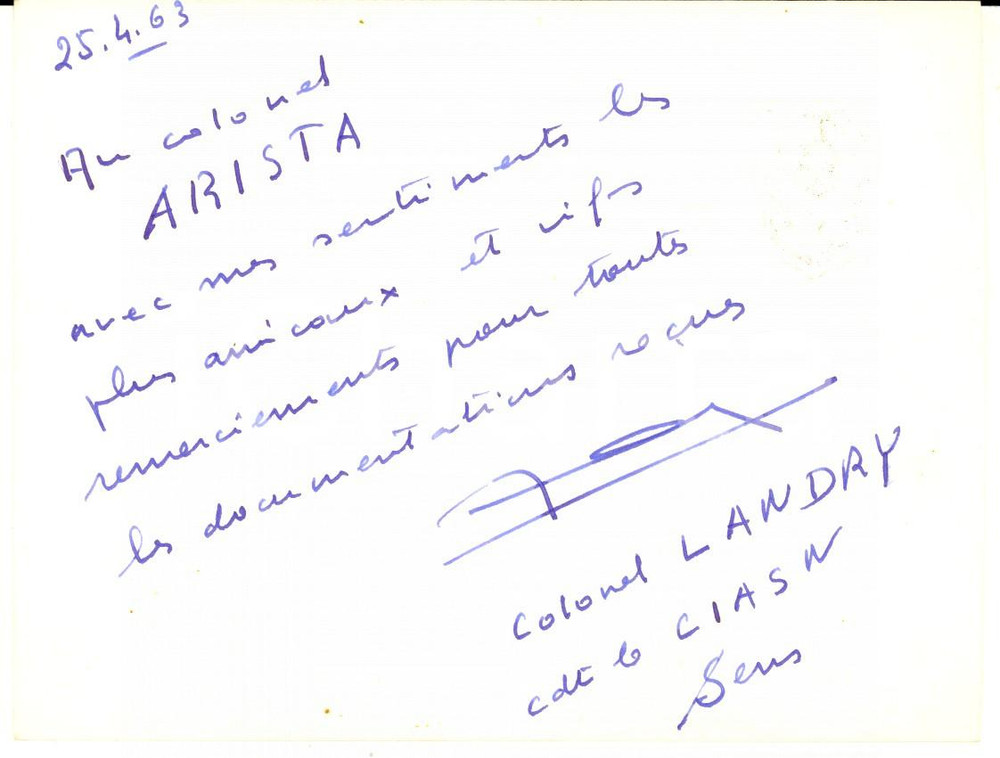 25.4.63
Au colonel
ARISTA
avec mes sentiments les
plus amicaux et vifs
remerciements pour toutes
les documentations reçues
Colonel LANDRY
cdt le CIASN
Sens